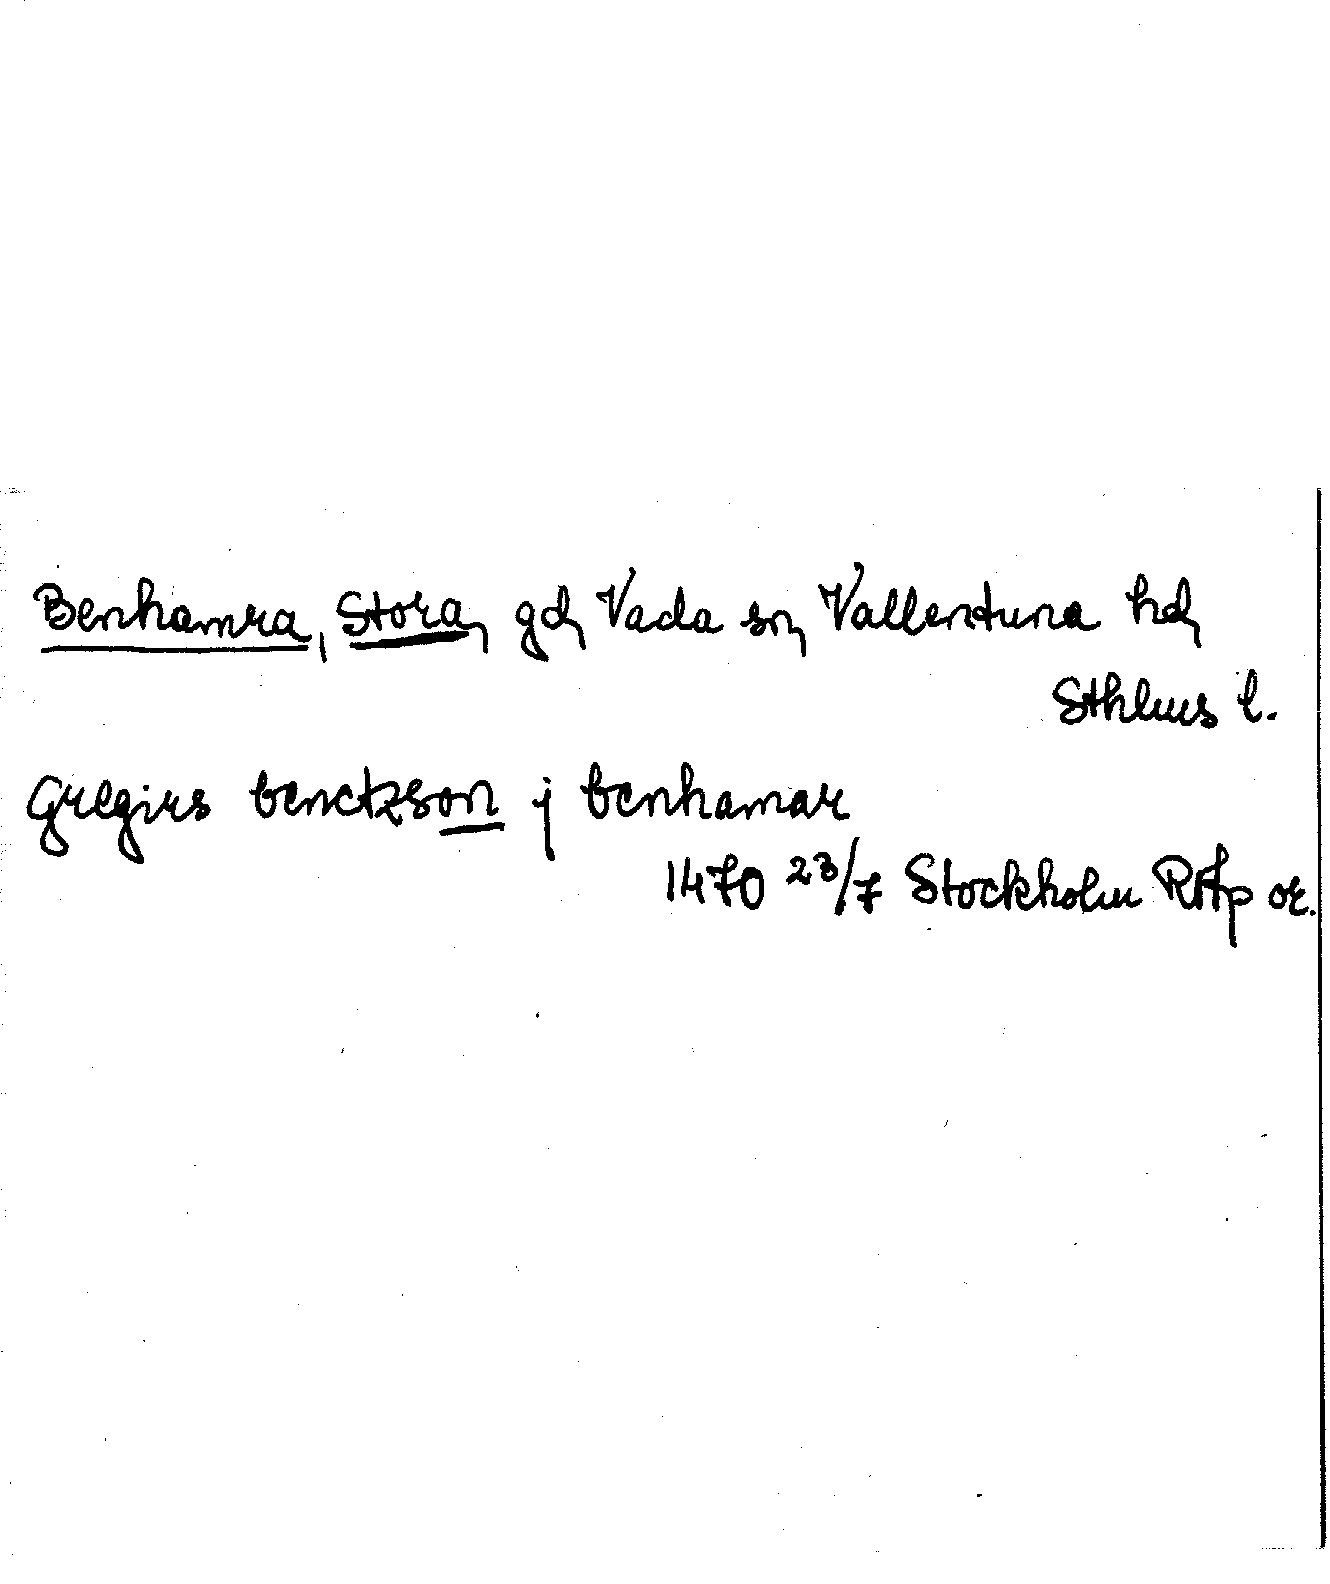 Benhamra, Stora, gd, Vada sn, Vallentuna hd,
Sthlms l.
Gregirs benctzson j benhamar
1470 23/7 Stockholm RAp or.